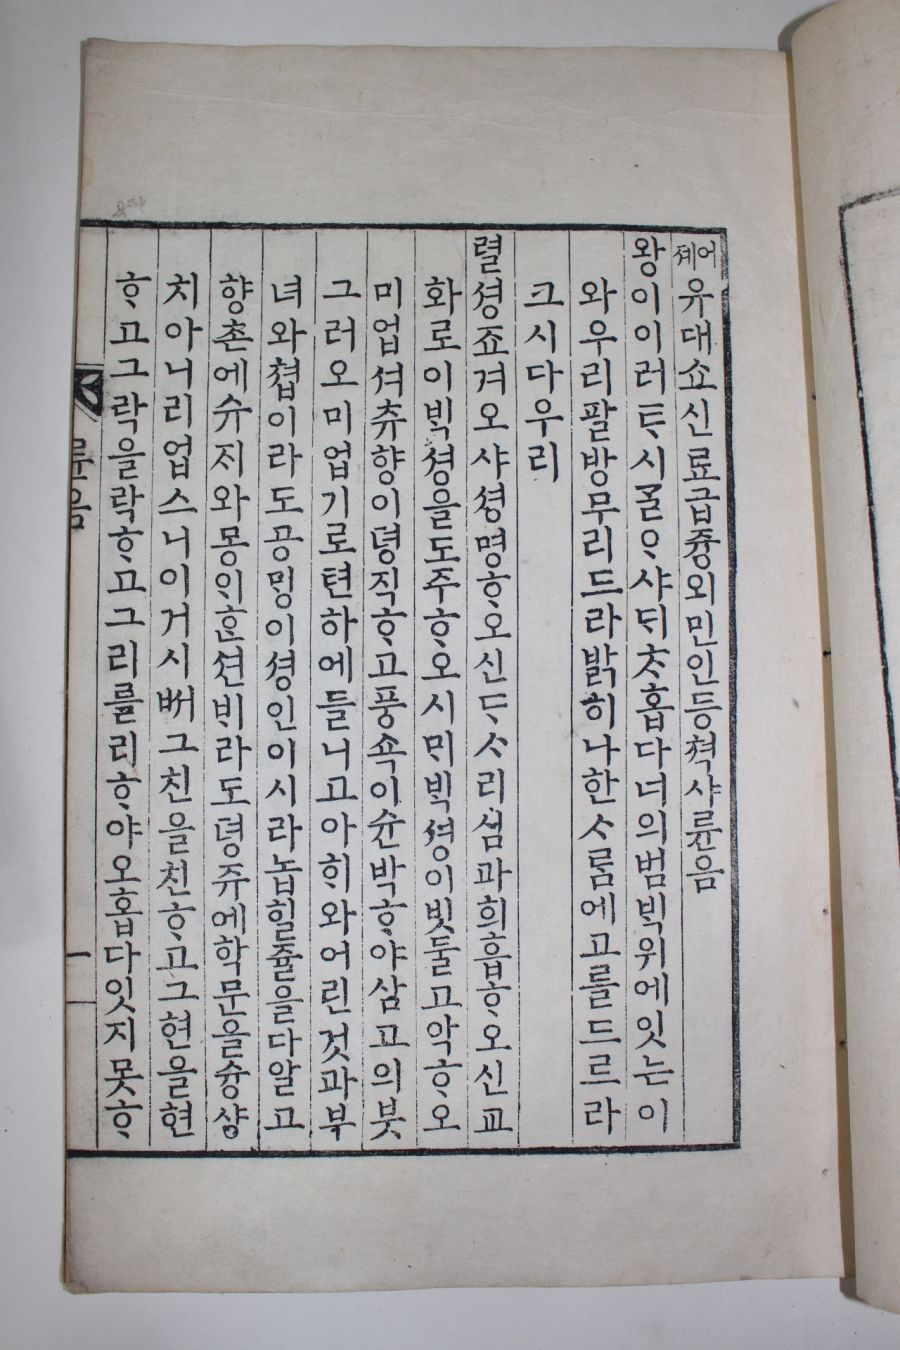 어졔유대쇼신료급즁외민인등쳑샤륜음
왕이이러ᄐᆞ시ᄀᆞᆯᄋᆞ샤ᄃᆡᄎᆞ홉다너의범ᄇᆡᆨ위에잇는이
와우리팔방무리드라밝히나한ᄉᆞᄅᆞᆷ에고를드르라
크시다우리
렬셩죠겨오샤셩명ᄒᆞ오신ᄃᆞᄉᆞ리심과희흡ᄒᆞ오신교
화로이ᄇᆡᆨ셩을도주ᄒᆞ오시ᄆᆡᄇᆡᆨ셩이빗둘고악ᄒᆞ오
미업셔츄향이뎡직ᄒᆞ고풍쇽이슌박ᄒᆞ야삼고의붓
그러오미업기로텬하에들니고아ᄒᆡ와어린것과부
녀와쳡이라도공ᄆᆡᆼ이셩인이시라놉힐쥴을다알고
향촌에슈ᄌᆡ와몽ᄋᆡᄒᆞᆫ션ᄇᆡ라도뎡쥬에학문을슝샹
치아니리업스니이거시ᄡᅥ그친을친ᄒᆞ고그현을현
ᄒᆞ고그락을락ᄒᆞ고그리를리ᄒᆞ야오홉다잇지못ᄒᆞ
륜음
一